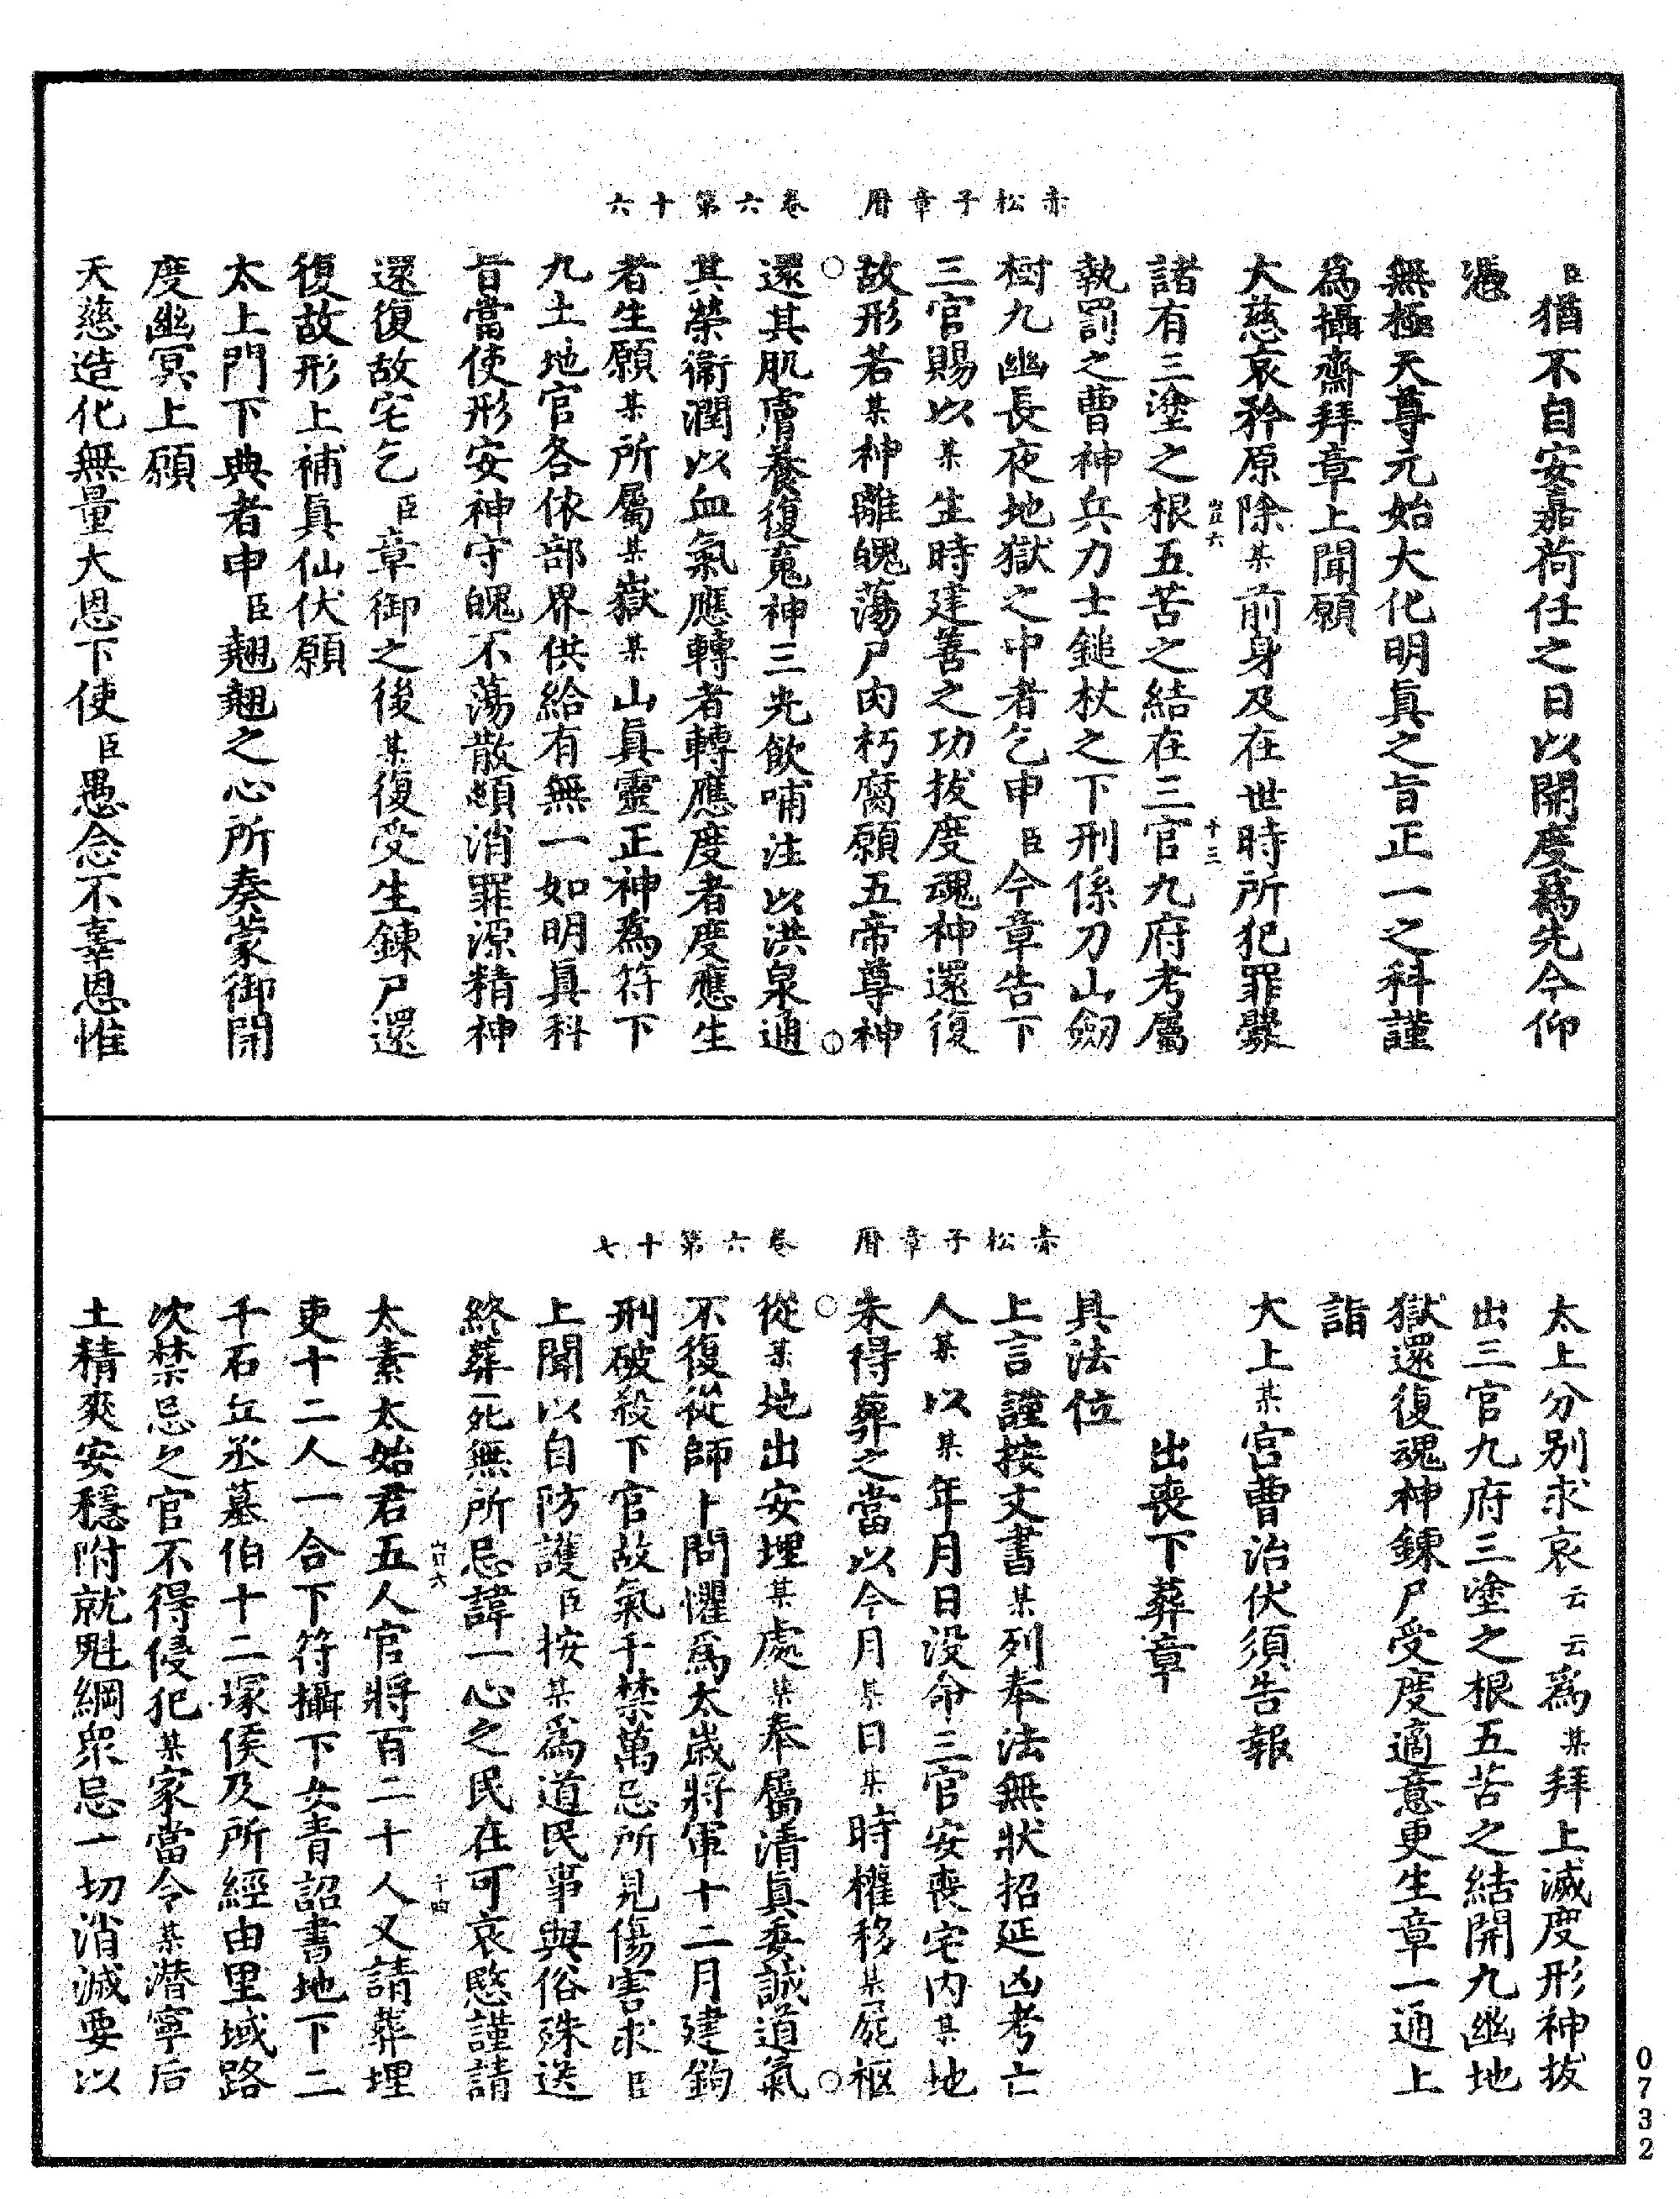 赤松子章曆　卷六第十六
臣猶不自安嘉荷任之日以開度爲先今仰
憑
無極天尊元始大化明眞之旨正一之科謹
爲攝齋拜章上聞願
大慈哀矜原除某前身及在世時所犯罪釁
山豆六　十三
諸有三塗之根五苦之結在三官九府考屬
執罰之曹神兵力士鎚杖之下刑係刀山劒
樹九幽長夜地獄之中者乞申臣今章告下
三官賜以某生時建善之功拔度魂神還復
故形若某神離魄蕩尸肉朽腐願五帝尊神
還其肌膚養復䰟神三光飲哺注以洪泉通
其榮衛潤以血氣應轉者轉應度者度應生
者生願某所屬某嶽某山眞靈正神爲符下
九土地官各依部界供給有無一如明眞科
旨當使形安神守魄不蕩散愆消罪源精神
還復故宅乞臣章御之後某復受生鍊尸還
復故形上補眞仙伏願
太上門下典者申臣翹翹之心所奏蒙御開
度幽冥上願
天慈造化無量大恩下使臣愚念不辜恩惟
赤松子章曆　卷六第十七
太上分別求哀云云爲某拜上滅度形神拔
出三官九府三塗之根五苦之結開九幽地
獄還復魂神鍊尸受度適意更生章一通上
詣
大上某宮曹治伏須告報
出喪下葬章
具法位
上言謹按文書某列奉法無狀招延凶考亡
人某以某年月日没命三官安喪宅内某地
未得葬之當以今月某日某時權移某屍柩
從某地出安埋某處某奉屬清眞委誠道氣
不復從師卜問懼爲太歲將軍十二月建鉤
刑破殺下官故氣千禁萬忌所見傷害求臣
上聞以自防護臣按某爲道民事與俗殊送
終葬死無所忌諱一心之民在可哀愍謹請
山豆六　十四
太素太始君五人官將百二十人又請葬埋
吏十二人一合下符攝下女青詔書地下二
千石丘丞墓伯十二塚侯及所經由里域路
次禁忌之官不得侵犯某家當令某潛寧后
土精爽安穩附就魁綱衆忌一切消滅要以
0732